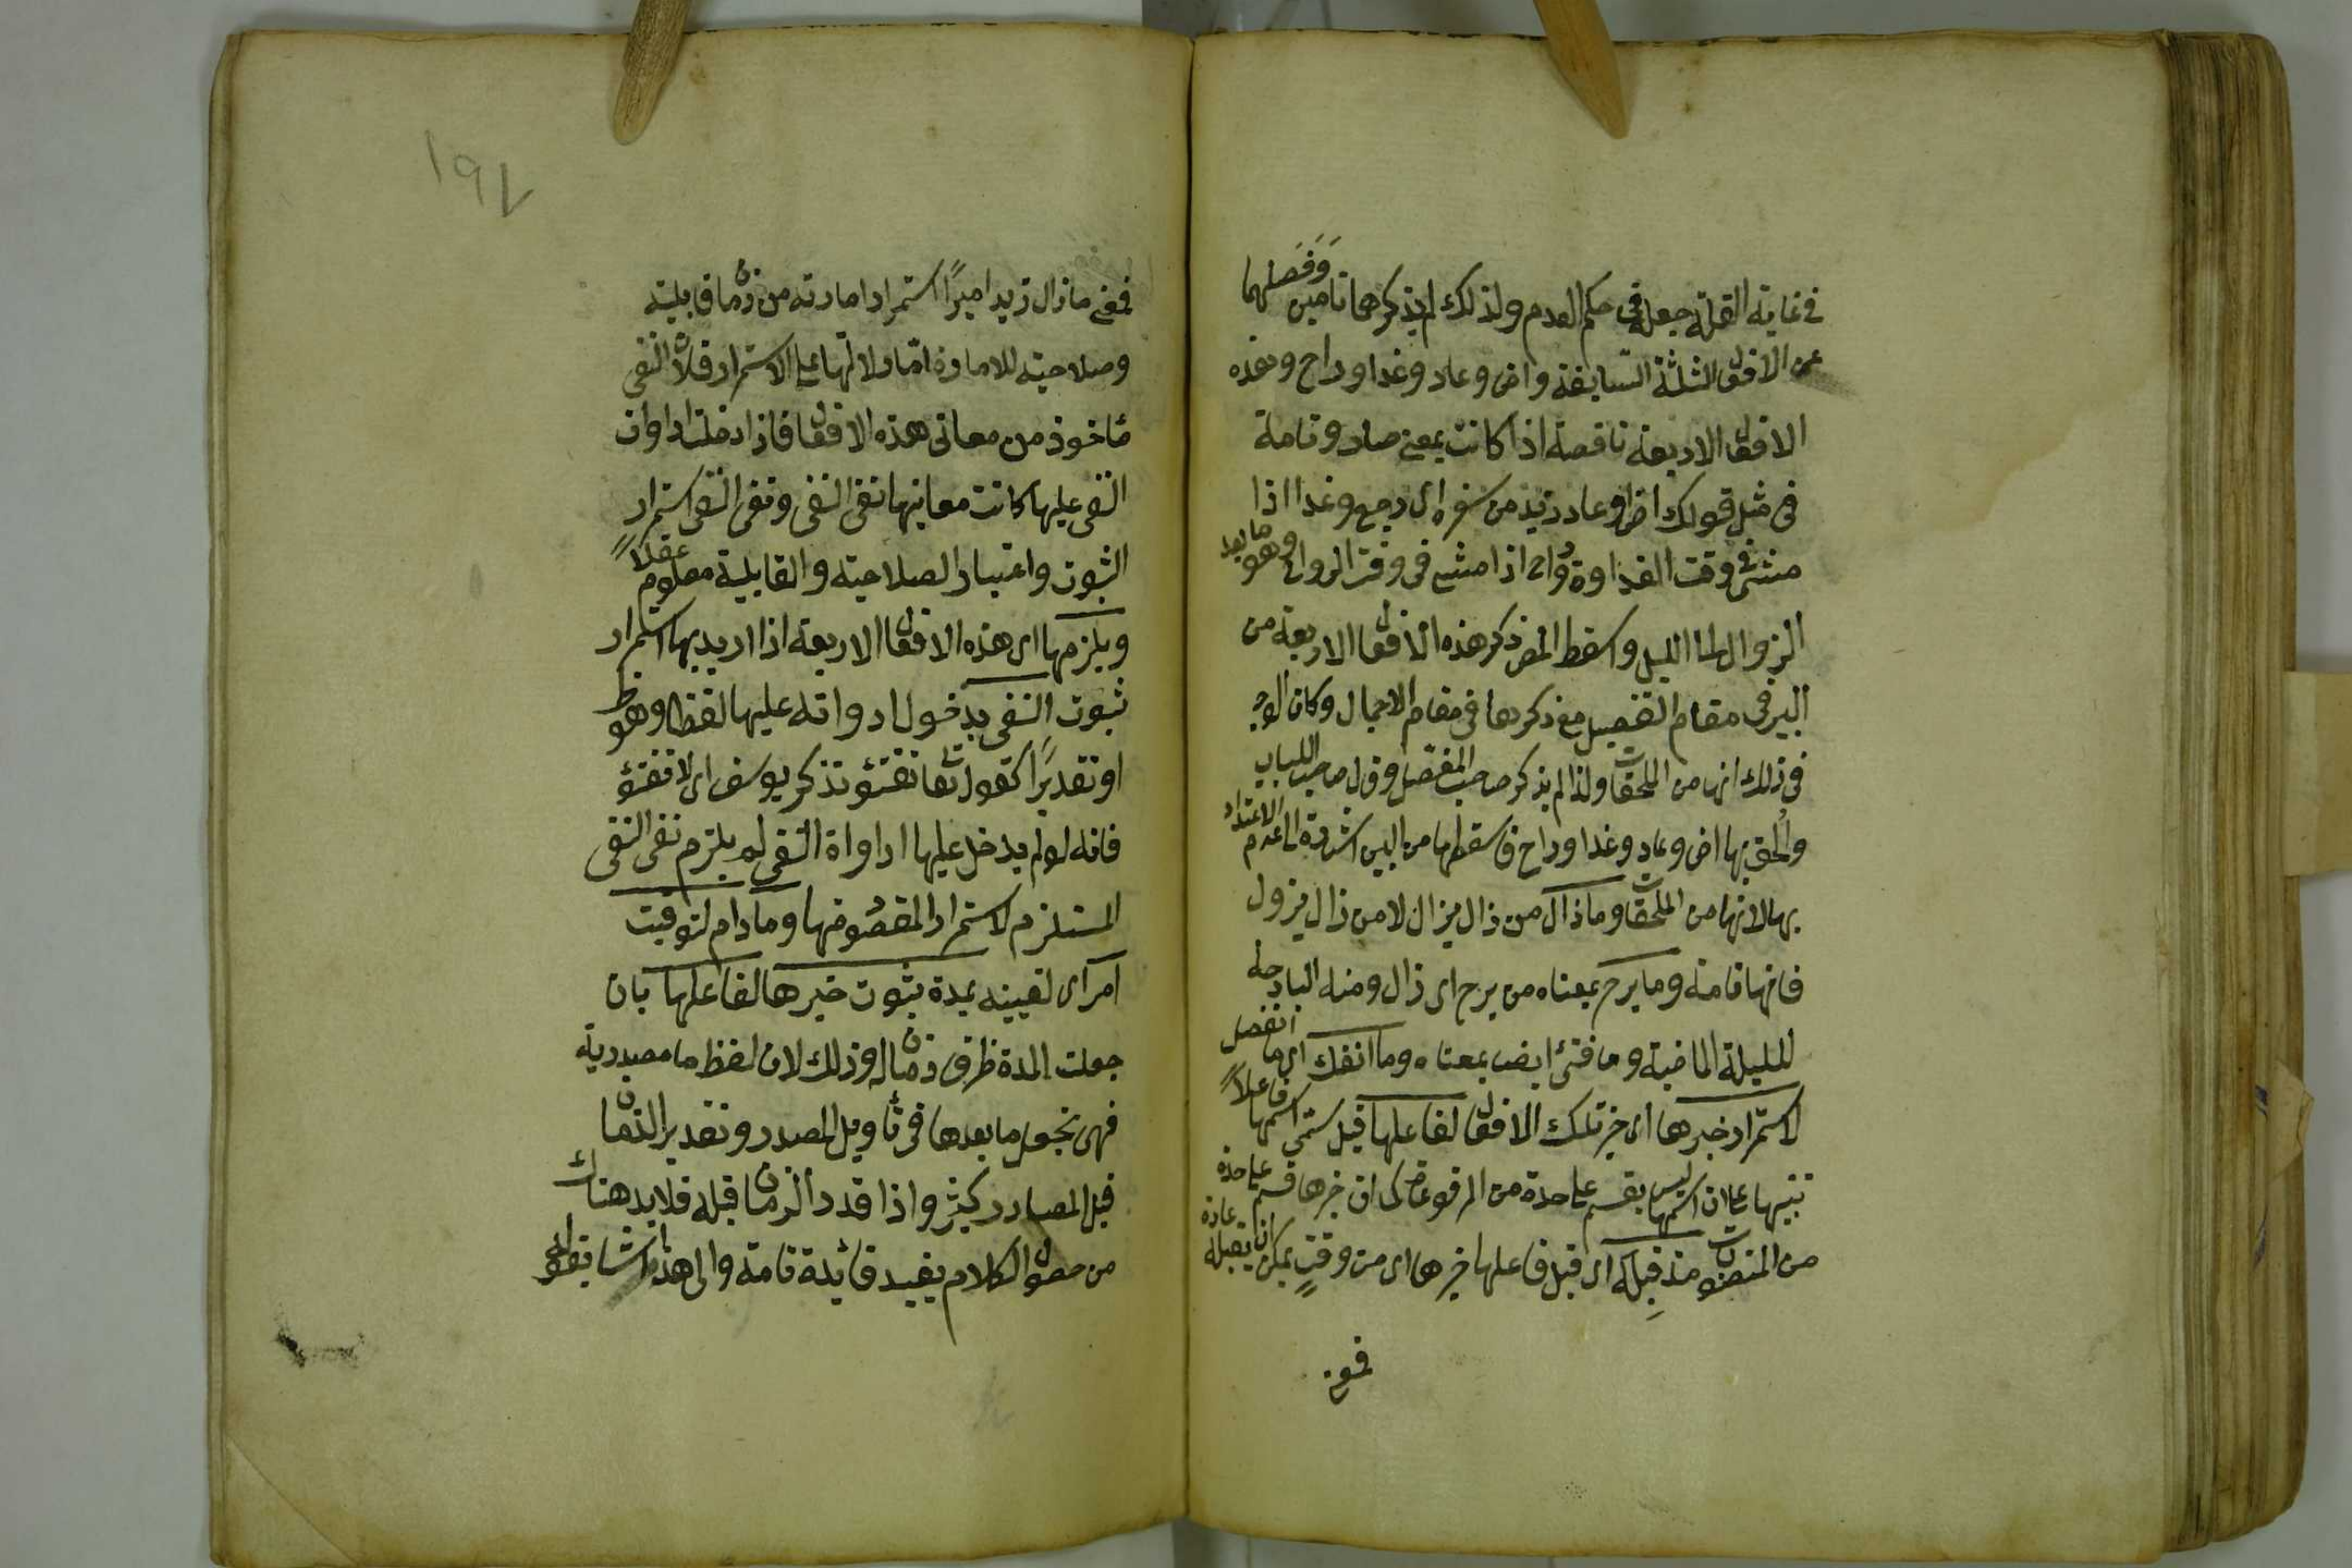 في غاية القلة جعله في حكم العدم ولذلك لم يذكرهما تامين وفصلهما
عن الافعال الثلثة السابقة واض وعاد وغدا وراح وهذه
الافعال الاربعة ناقصة اذا كانت بمعنى صار وتامة
في مثل قولك اض وعاد زيد من سفره اي رجع وغدا اذا
مشى في وقت الغداوة وراح اذا مشى في وقت الرواح وهو ما بعد
الزوال الى الليل واسقط المص ذكر هذه الافعال الاربعة من
البين في مقام التفصيل مع ذكرها في مقام الاجمال وكان الوجه
في ذلك انها من الملحقات ولذا لم يذكر صاحب المفصل وقال صاحب اللباب
والحق بها اض وعاد وغدا وراح فاسقطها من البين اشارة الى عدم الاعتداد
بها لانها من الملحقات وما زال من زال يزال لا من زال يزول
فانها تامة وما برح بمعناه من برح اي زال ومنه البارحة
لليلة الماضية وما فتئ ايضا بمعناه وما انفك اي ما انفصل
لاستمرار خبرها اي خبر تلك الافعال لفاعلها قيل سمى اسمها فاعلا
تنبيها على ان اسمها ليس بقسم على حدة من المرفوعات كما ان خبرها قسم على حدة
من المنصوبات مذ قبله اي قبل فاعلها خبرها اي من وقت يمكن ان يقبله عادة
فمعنى
١٩٧
فمعنى ما زال زيد اميرا استمرار امارته من زمان قابليته
وصلاحيته للامارة اما دلالتها على الاستمرار فلان النفي
مأخوذ من معاني هذه الافعال فاذا دخلت ادوات
النفي عليها كانت معانيها نفي النفي ونفي النفي استمرار
الثبوت واعتبار الصلاحية والقابلية معلوم عقلا
ويلزمها اي هذه الافعال الاربعة اذا اريد بها استمرار
ثبوت النفي بدخول ادواته عليها لفظا وهو ظ
او تقديرا كقوله تعالى تفتؤ تذكر يوسف اي لا تفتؤ
فانه لو لم يدخل عليها ادواة النفي لم يلزم نفي النفي
المستلزم لاستمرار المقصود منها وما دام لتوقيت
امر اي تعيينه بمدة ثبوت خبرها لفاعلها بان
جعلت المدة ظرف زمان له وذلك لان لفظ ما مصدرية
فهي تجعل ما بعدها في تأويل المصدر وتقدير الزمان
قبل المصادر كثير واذا قدر الزمان قبله فلا بد هناك
من حصول الكلام يفيد فائدة تامة والى هذا اشار بقوله